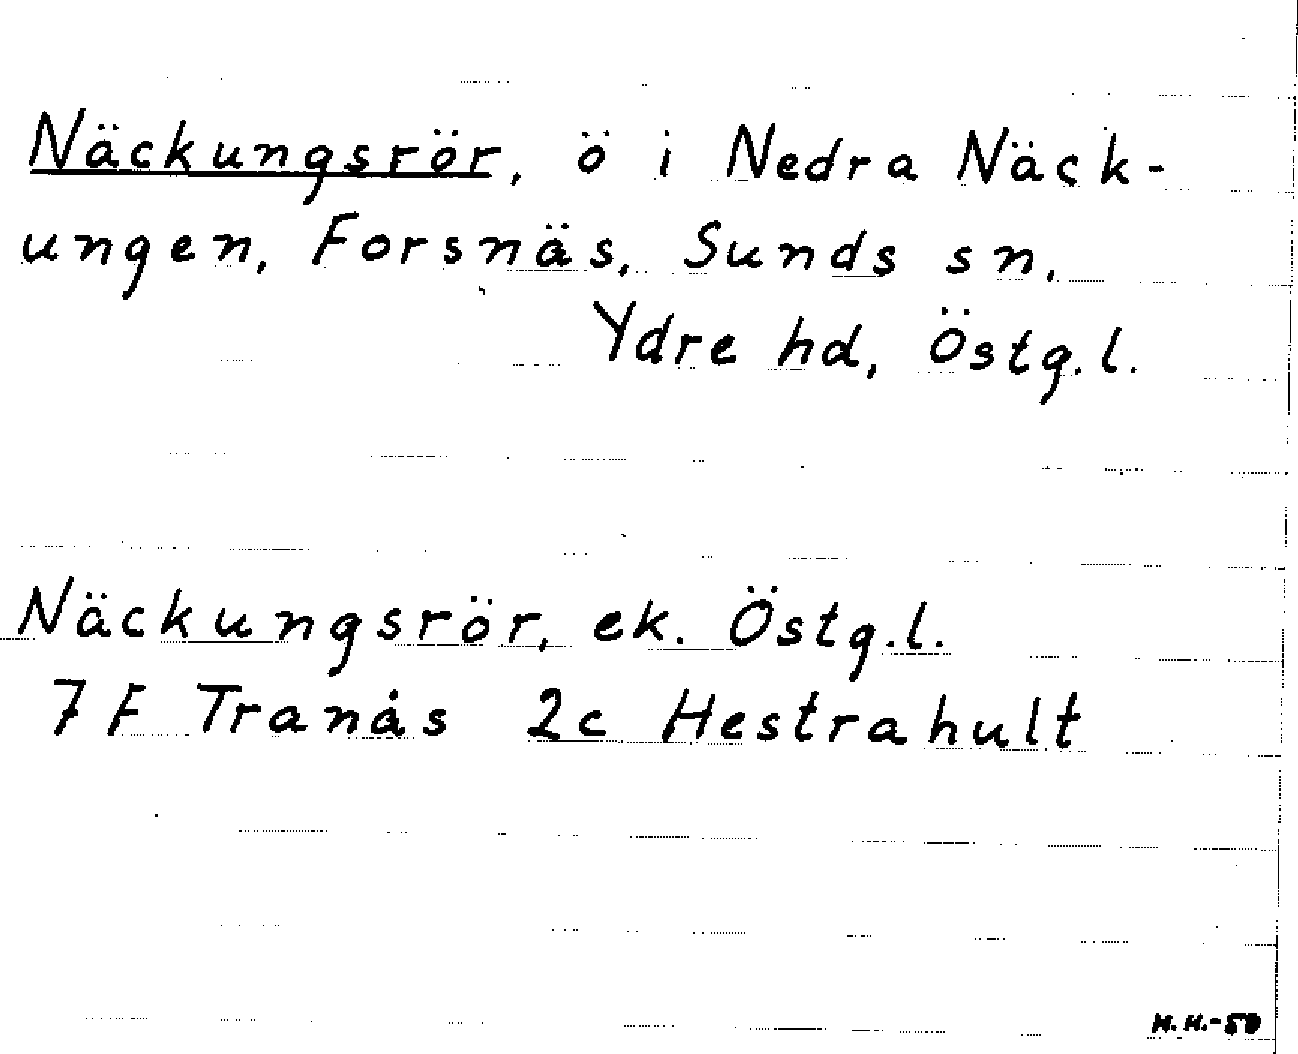 Näckungsrör, ö i Nedra Näck-
ungen, Forsnäs, Sunds sn,
Ydre hd, Östg.l.
Näckungsrör, ek. Östg.l.
7 F Tranås 2c Hestrahult